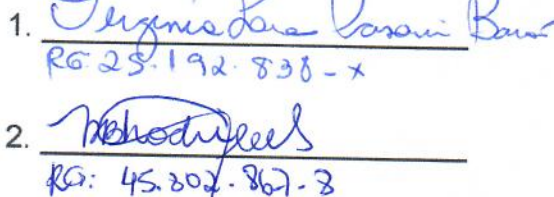 1. Virginia Lara Casarin
RG 25.192.838-x
2.
RG: 45.302.867-8